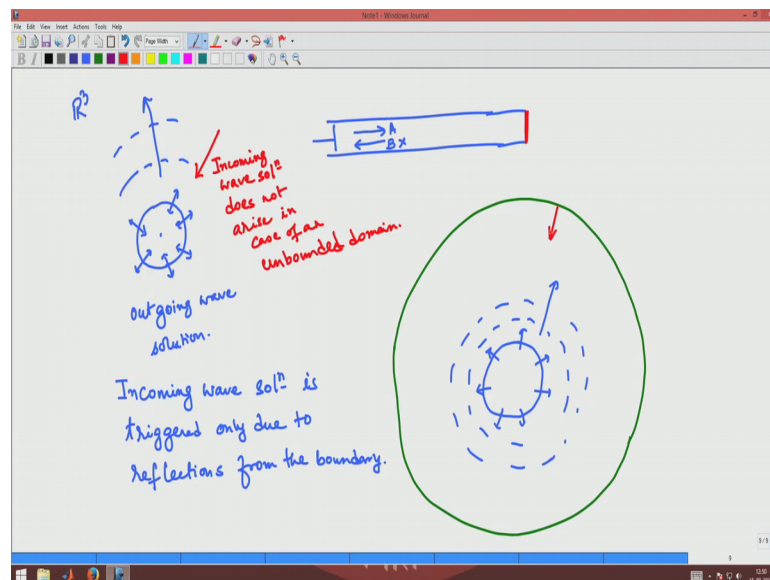 Note1 - Windows Journal
File Edit View Insert Actions Tools Help
Page Width
B I
ℝ³
A
B x
Incoming
wave solⁿ
does not
arise in
case of an
unbounded domain.
outgoing wave
solution.
Incoming wave solⁿ is
triggered only due to
reflections from the boundary.
9/9
9
12:50